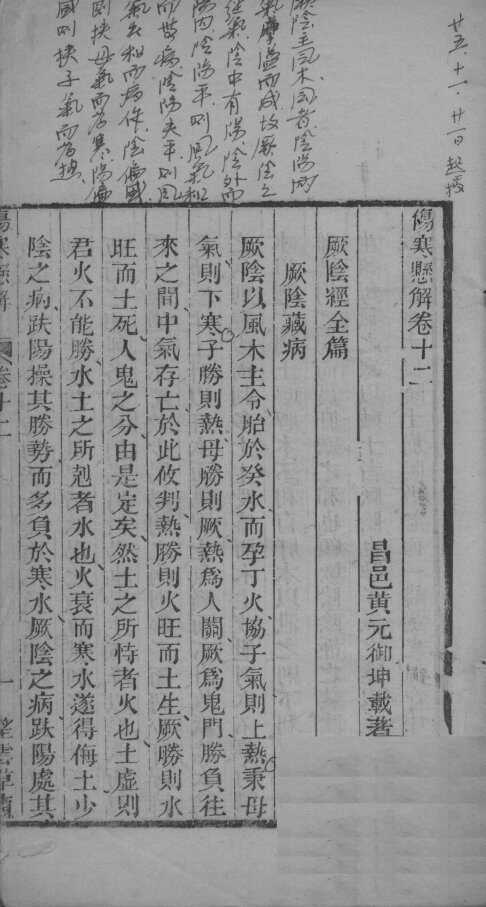 廿五、十一、廿一日起授
厥陰主風木風者陰陽
而成故厥陰之
陰中有陽陰外而
陽内陰陽平則風氣和
而無病陰陽失平則風
氣去和而病作陰偏盛
則挾母氣而為寒陽偏
盛則挾子氣而為熱
傷寒懸解卷十二
昌邑黃元御坤載著
厥陰經全篇
厥陰藏病
厥陰以風木主令胎於癸水而孕丁火協子氣則上熱秉母
氣則下寒子勝則熱母勝則厥熱爲人關厥爲鬼門勝負往
來之間中氣存亡於此攸判熱勝則火旺而土生厥勝則水
旺而土死人鬼之分由是定矣然土之所恃者火也土虛則
君火不能勝水土之所剋者水也火衰而寒水遂得侮土少
陰之病趺陽操其勝勢而多負於寒水厥陰之病趺陽處其
傷寒懸解
卷十二
一